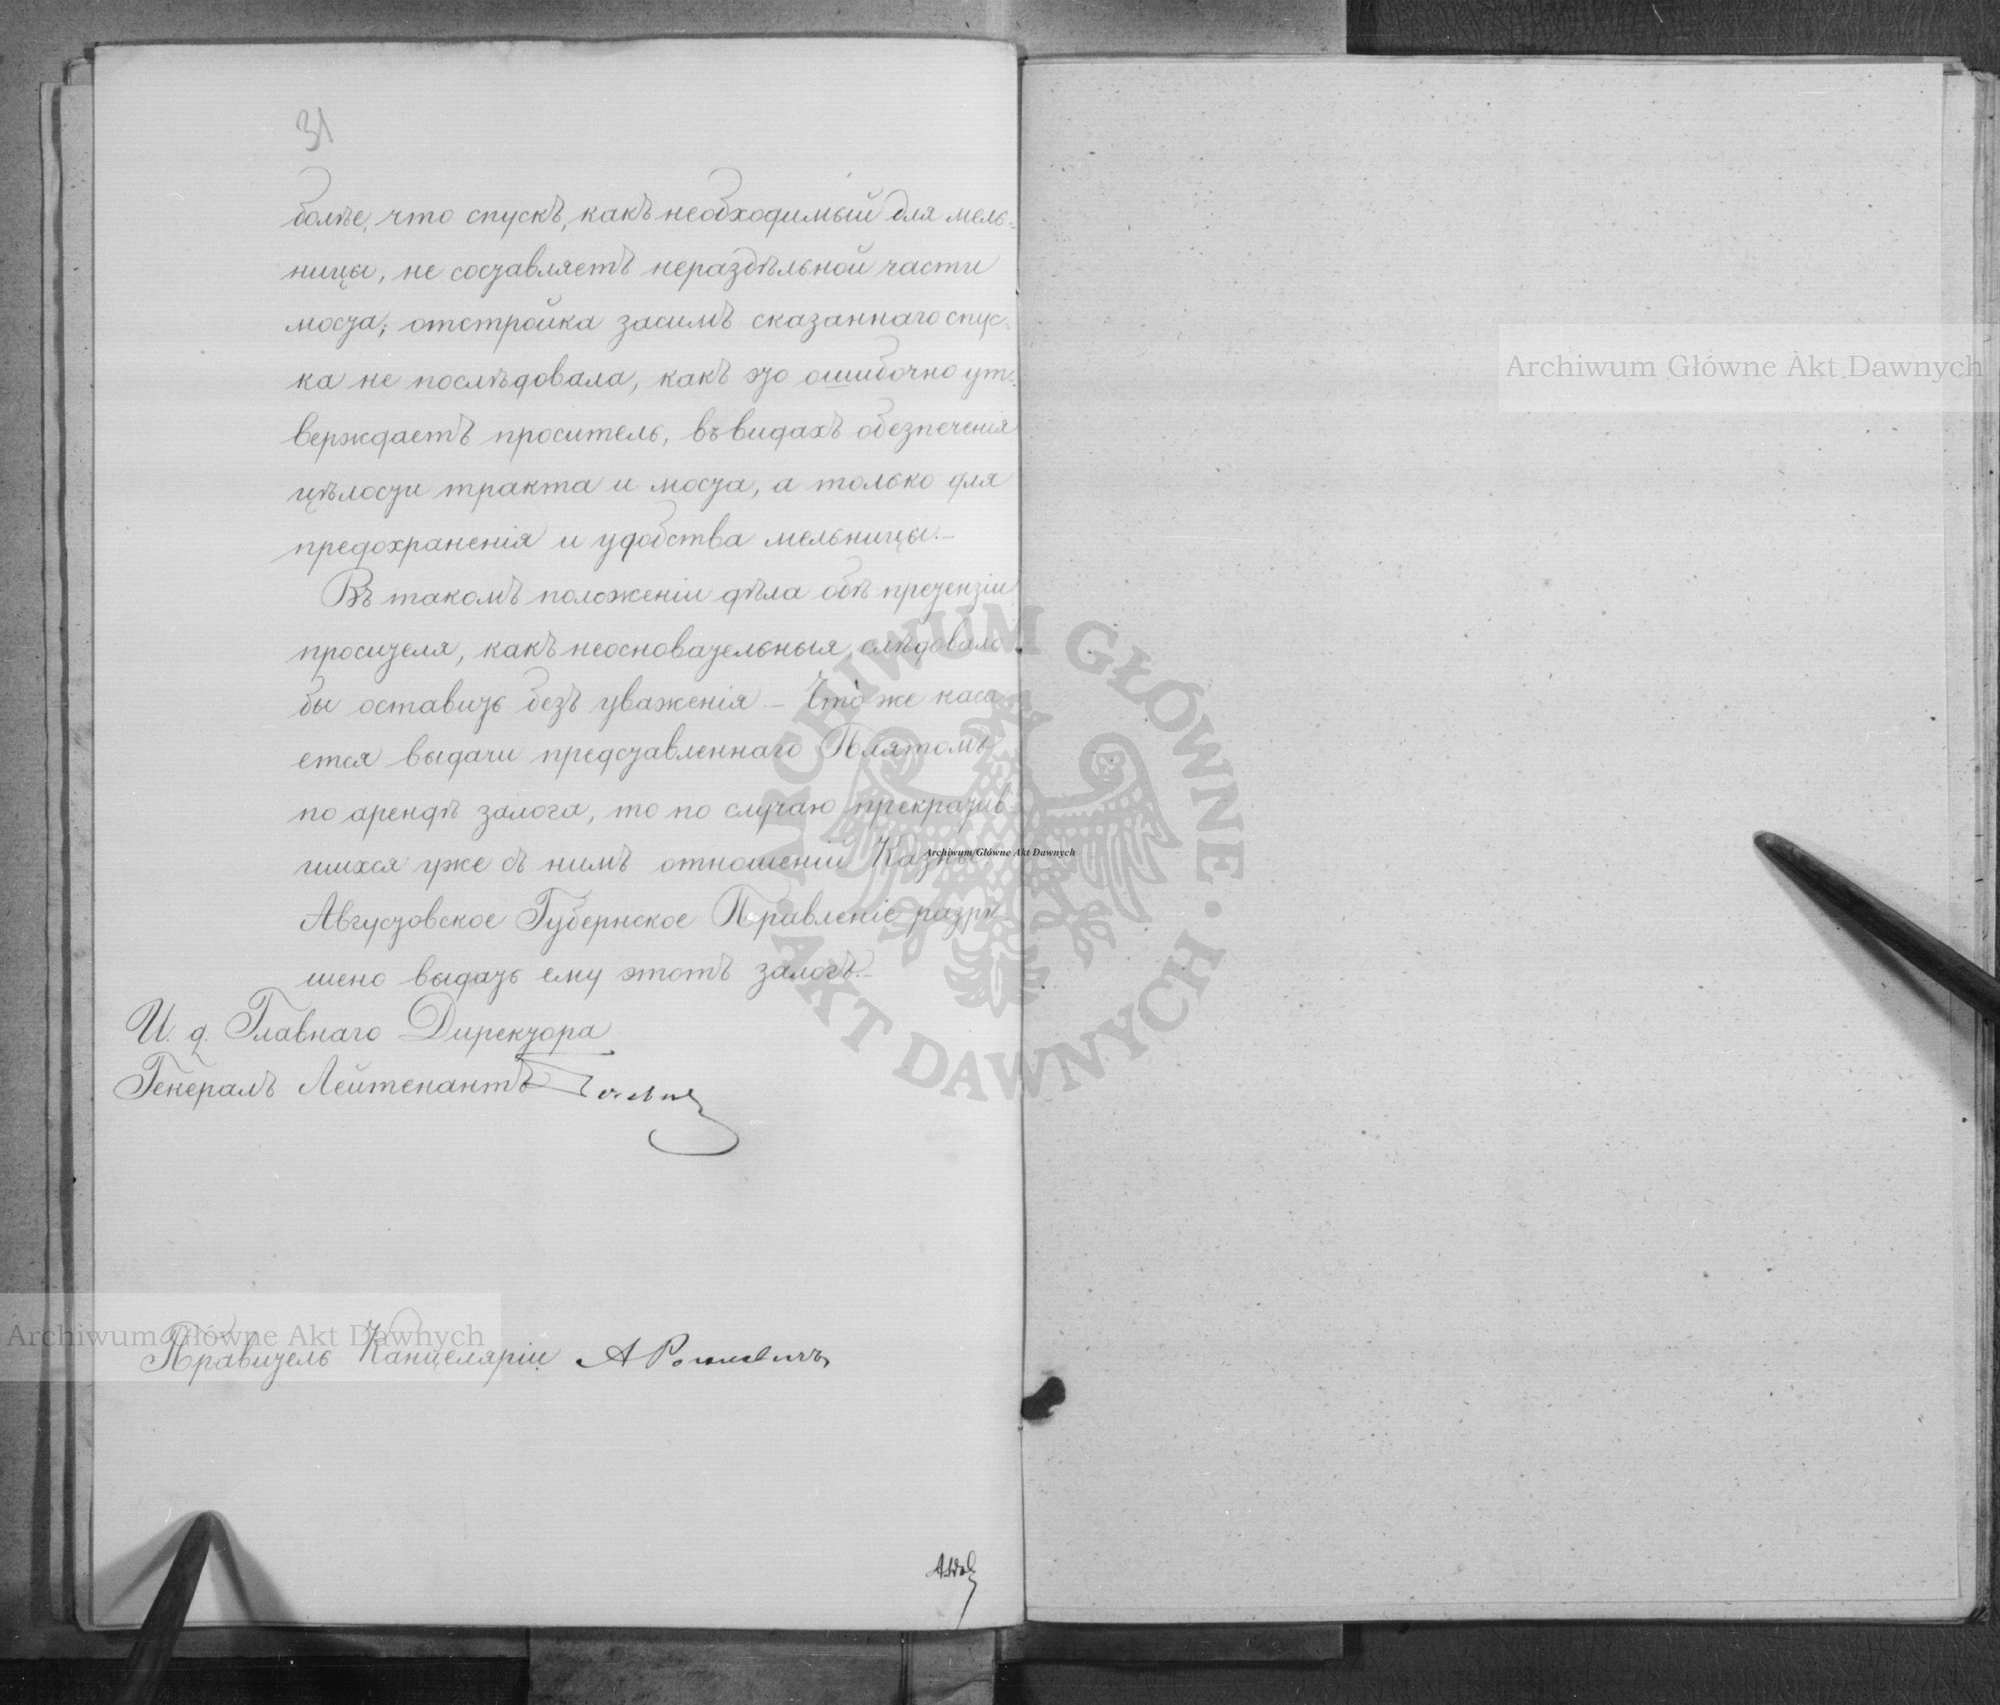 31
болѣе, что спускъ, какъ необходимый для мель-
ницы, не составляетъ нераздѣльной части
моста; отстройка засимъ сказаннаго спус-
ка не послѣдовала, какъ это ошибочно ут-
верждаетъ проситель, въ видахъ обезпеченія
цѣлости тракта и моста, а только для
предохраненія и удобства мельницы.–
Въ такомъ положеніи дѣла обѣ претензіи
просителя, какъ неосновательныя, слѣдовало
бы оставить безъ уваженія.– Что же каса-
ется выдачи представленнаго Плятомъ
по арендѣ залога, то по случаю прекратив-
шихся уже съ нимъ отношеніи Казны
Августовское Губернское Правленіе разрѣ-
шено выдать ему этотъ залогъ.–
И. д. Главнаго Директора
Генералъ Лейтенантъ
Правитель Канцеляріи А
Archiwum Główne Akt Dawnych
Archiwum Główne Akt Dawnych
Archiwum Główne Akt Dawnych
ARCHIWUM GŁÓWNE · AKT DAWNYCH ·